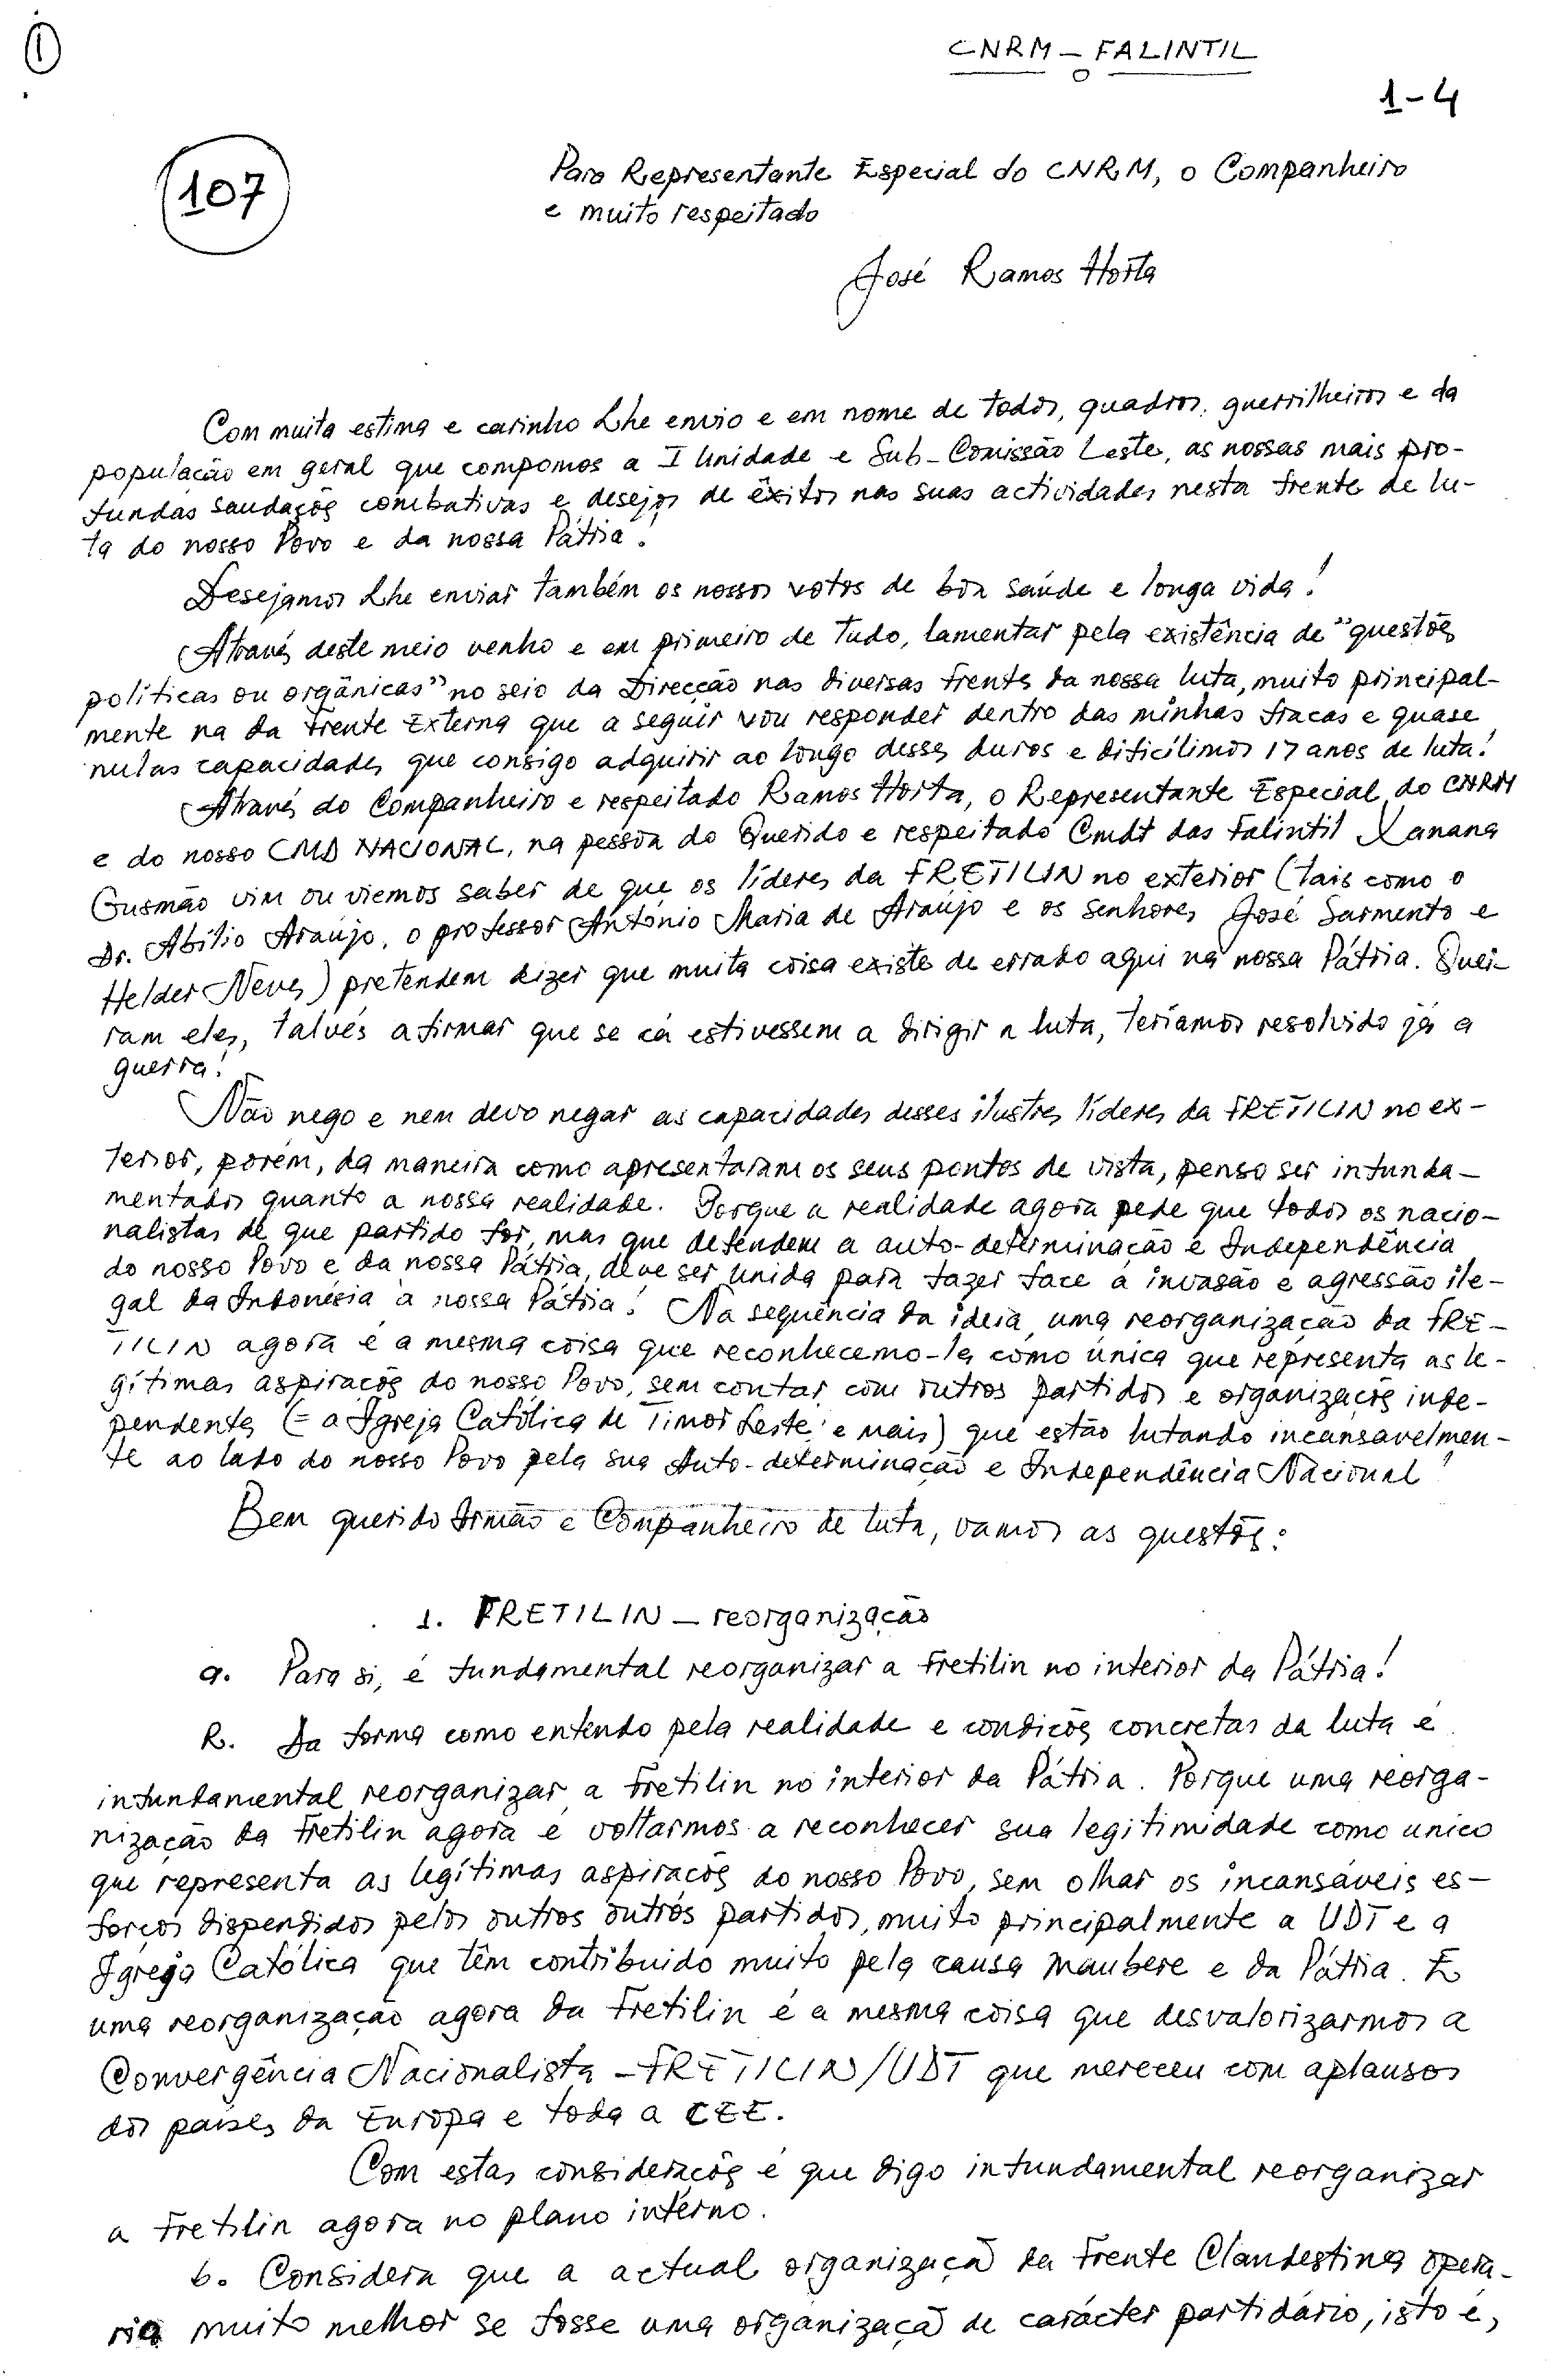 1
CNRM - FALINTIL
1-4
107
Para Representante Especial do CNRM, o Companheiro
e muito respeitado
José Ramos Horta
Com muita estima e carinho Lhe envio e em nome de todos, quadros, guerrilheiros e da
população em geral que compomos a I Unidade e Sub-Comissão Leste, as nossas mais pro-
fundas saudações combativas e desejos de êxitos nas suas actividades nesta frente de lu-
ta do nosso Povo e da nossa Pátria!
Desejamos Lhe enviar também os nossos votos de boa saúde e longa vida!
Através deste meio venho e em primeiro de tudo, lamentar pela existência de "questões
políticas ou orgânicas" no seio da Direcção nas diversas frentes da nossa luta, muito principal-
mente na da Frente Externa que a seguir vou responder dentro das minhas fracas e quase
nulas capacidades que consigo adquirir ao longo desses duros e dificílimos 17 anos de luta!
Através do Companheiro e respeitado Ramos Horta, o Representante Especial do CNRM
e do nosso CMD NACIONAL, na pessoa do Querido e respeitado Cmdt das Falintil Xanana
Gusmão vim ou viemos saber de que os líderes da FRETILIN no exterior (tais como o
Dr. Abílio Araújo, o professor António Maria de Araújo e os senhores José Sarmento e
Helder Neves) pretendem dizer que muita coisa existe de errado aqui na nossa Pátria. Quei-
ram eles, talvés afirmar que se cá estivessem a dirigir a luta, teríamos resolvido já a
guerra!
Não nego e nem devo negar as capacidades desses ilustres líderes da FRETILIN no ex-
terior, porém, da maneira como apresentaram os seus pontos de vista, penso ser infunda-
mentados quanto a nossa realidade. Porque a realidade agora pede que todos os nacio-
nalistas de que partido for, mas que defendem a auto-determinação e Independência
do nosso Povo e da nossa Pátria, deve ser unida para fazer face à invasão e agressão ile-
gal da Indonésia à nossa Pátria! Na sequência da ideia, uma reorganização da FRE-
TILIN agora é a mesma coisa que reconhecemo-la como única que representa as le-
gítimas aspirações do nosso Povo, sem contar com outros partidos e organizações inde-
pendentes (= a Igreja Católica de Timor Leste e mais) que estão lutando incansavelmen-
te ao lado do nosso Povo pela sua Auto-determinação e Independência Nacional!
Bem querido Irmão e Companheiro de luta, vamos as questões:
1. FRETILIN - reorganização
a. Para si, é fundamental reorganizar a Fretilin no interior da Pátria!
R. Da forma como entendo pela realidade e condições concretas da luta é
infundamental reorganizar a Fretilin no interior da Pátria. Porque uma reorga-
nização da Fretilin agora é voltarmos a reconhecer sua legitimidade como único
que representa as legítimas aspirações do nosso Povo, sem olhar os incansáveis es-
forços dispendidos pelos outros outros partidos, muito principalmente a UDT e a
Igreja Católica que têm contribuido muito pela causa Maubere e da Pátria. E
uma reorganização agora da Fretilin é a mesma coisa que desvalorizarmos a
Convergência Nacionalista - FRETILIN/UDT que mereceu com aplausos
dos países da Europa e toda a CEE.
Com estas considerações é que digo infundamental reorganizar
a Fretilin agora no plano interno.
b. Considera que a actual organizaçã da Frente Clandestina opera-
ria muito melhor se fosse uma organizaçã de carácter partidário, isto é,